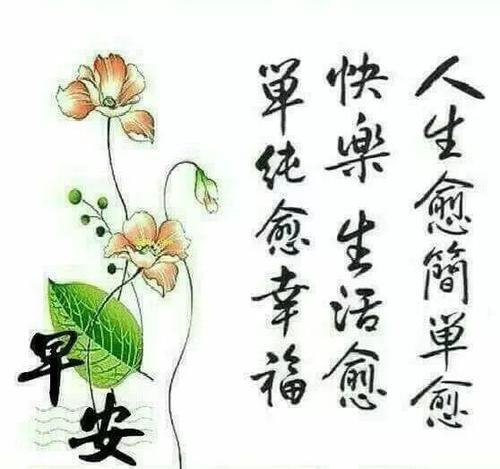 人生愈簡単愈
快樂 生活愈
單純愈幸福
早安